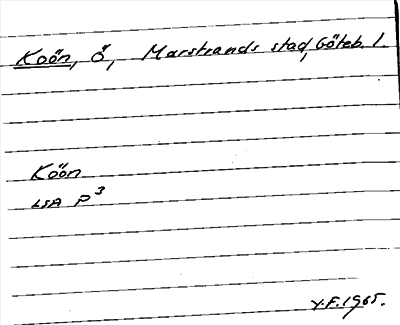 Koön, Ö, Marstrands stad, Göteb. l.
Köön
LSA P3
Y.F. 1965.